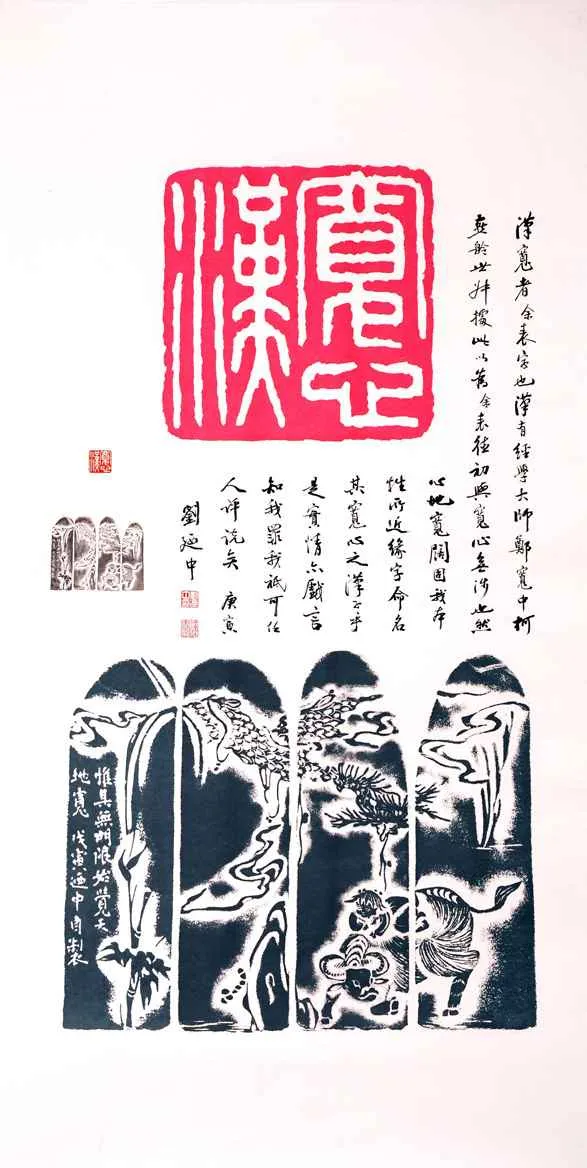 寬心
漢
漢寬者余表字也漢有經學大師鄭寬中柯
燕舲世據此以為余表德初與寬心無涉也然
心地寬闊固我本
性所近緣字命名
其寬心之漢乎
是實情亦戲言
知我罪我祇可任
人評說矣 庚寅
劉廼中
寬心漢
惟其無門限始覺天
地寬 戊寅廼中自製